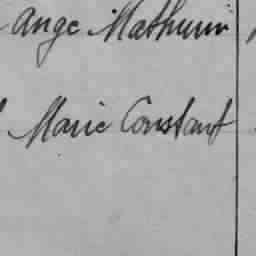 Ange Mathurin
Marie Constant